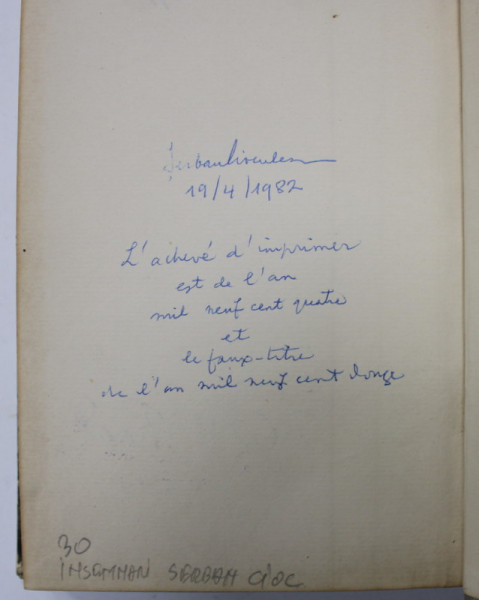 19/4/1982
L'achevé d'imprimer
est de l'an
mil neuf cent quatre
et
le faux-titre
de l'an mil neuf cent douze
30
INSEMNAN SERBAN CIOC